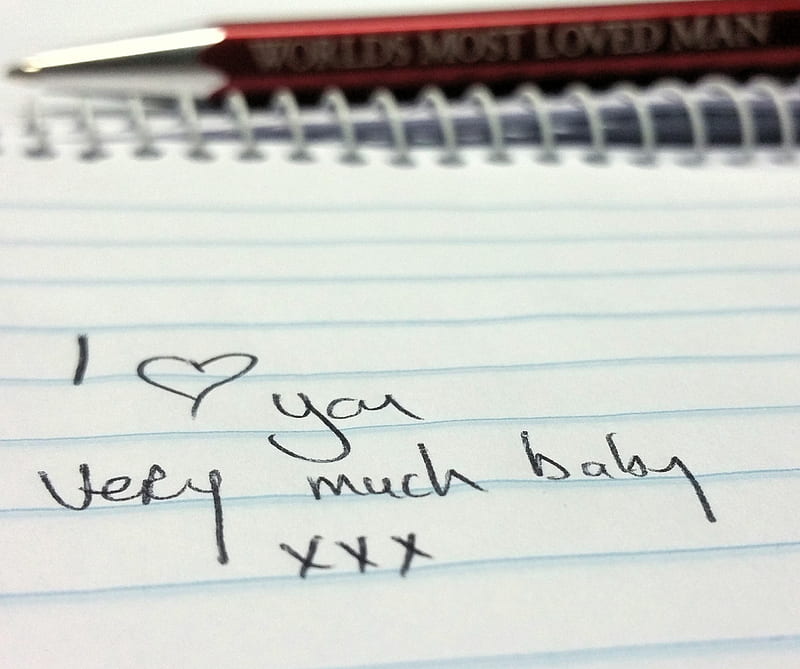 WORLDS MOST LOVED MAN
I ♡ you
very much baby
xxx